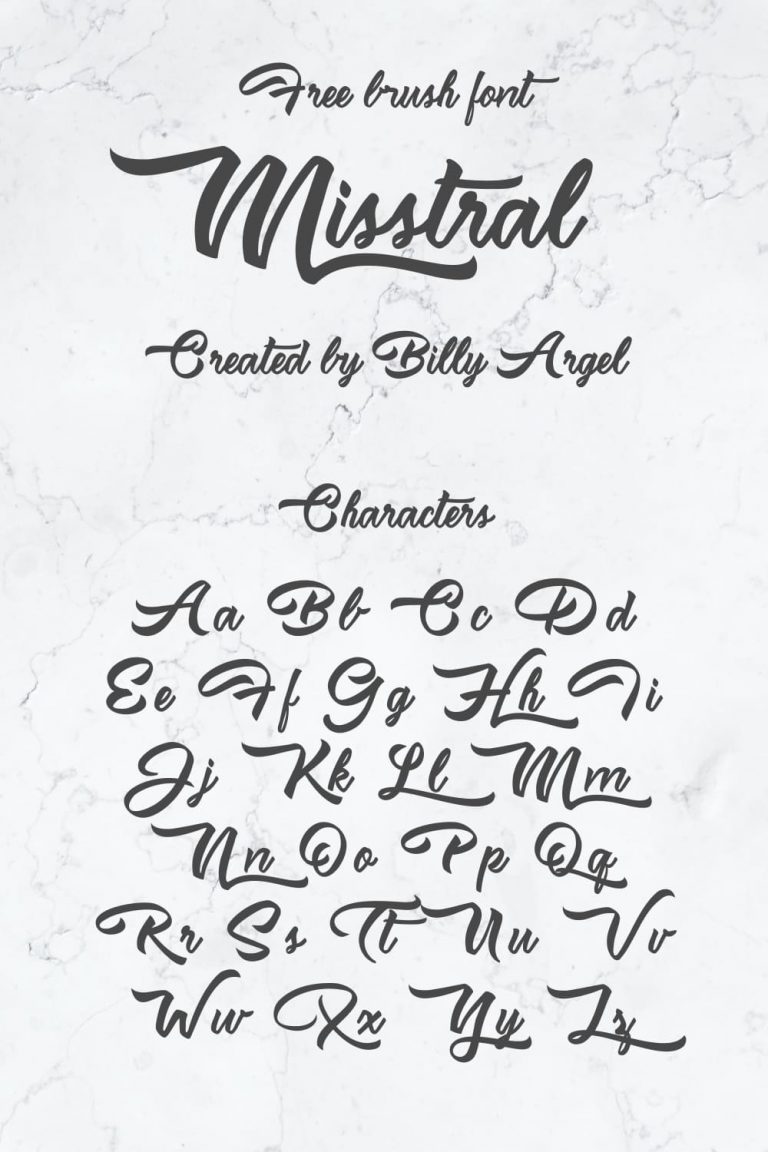 Free brush font
Misstral
Created by Billy Argel
Characters
Aa Bb Cc Dd
Ee Ff Gg Hh Ii
Jj Kk Ll Mm
Nn Oo Pp Qq
Rr Ss Tt Uu Vv
Ww Xx Yy Zz